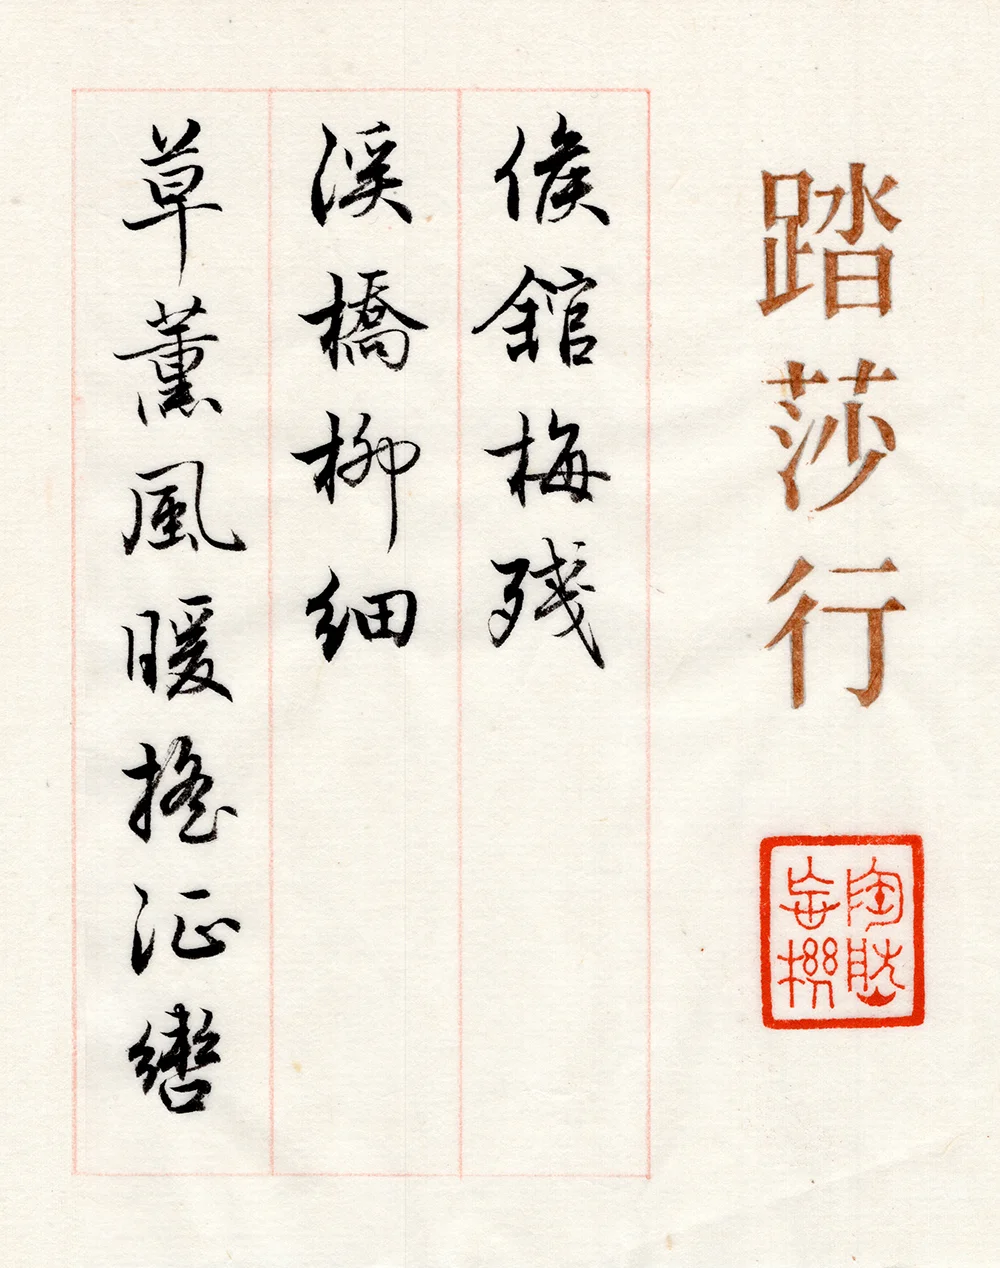 踏莎行
陶然忘機
候館梅残
溪橋柳細
草薰風暖搖征轡